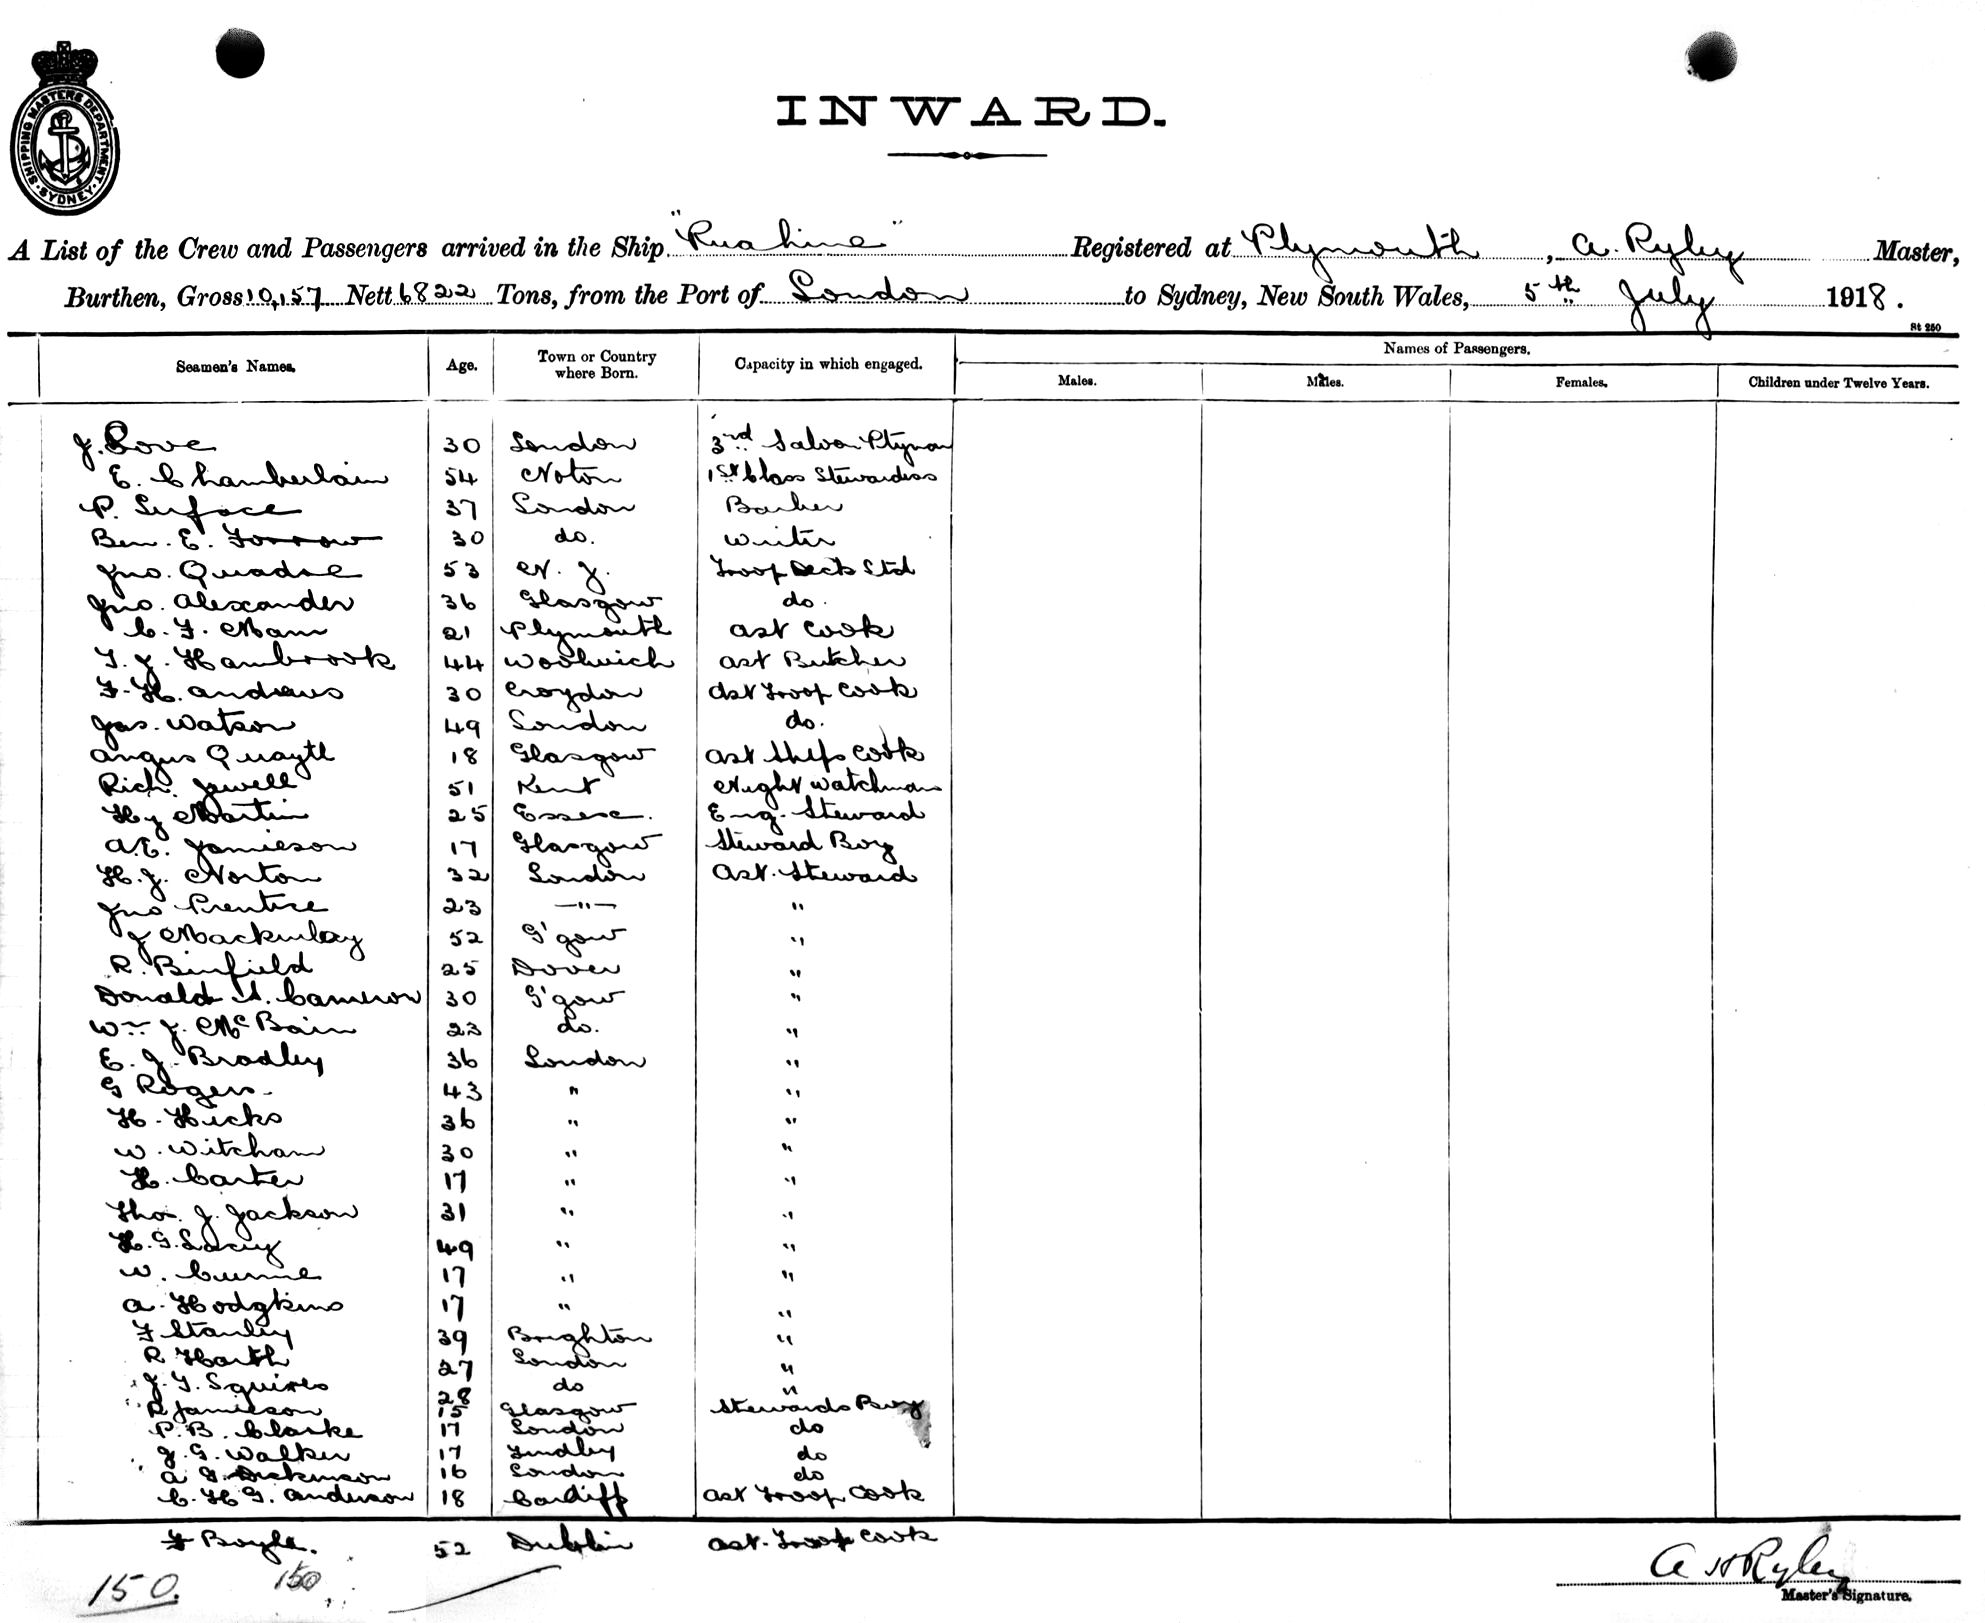 SHIPPING MASTERS DEPARTMENT
SYDNEY
INWARD.
A List of the Crew and Passengers arrived in the Ship "Ruahine" Registered at Plymouth, A. Ryley Master,
Burthen, Gross 10,157 Nett 6822 Tons, from the Port of London to Sydney, New South Wales, 5th July 1918.
St 250
Seamen's Names. Age. Town or Country where Born. Capacity in which engaged. Names of Passengers.
Males. Males. Females. Children under Twelve Years.
J. Love 30 London 3rd Saloon
E. Chamberlain 54 1st Class Stewardess
P. Surface 37 London Barber
Ben. E. Forrow 30 do. Writer
Jno. 53 N. Z. Troop Deck Std
Jno. Alexander 36 Glasgow do.
C. F. Mam 21 Plymouth Ast Cook
T. J. Hambrook 44 Woolwich Ast Butcher
F. H. Andrews 30 Croydon Ast Troop Cook
Jas. Watson 49 London do.
Angus 18 Glasgow Ast Ships Cook
Rich. Jewell 51 Kent Night Watchman
Hy Martin 25 Essex. Eng. Steward
A. E. Jamieson 17 Glasgow Steward Boy
H. J. Norton 32 London Ast. Steward
Jno Prentice 23 —"— "
J Mackinlay 52 G'gow "
R. Binfield 25 Dover "
Donald A. Cameron 30 G'gow "
Wm J. McBain 23 do. "
E. J. Bradley 36 London "
G Rogers 43 " "
H. Hicks 36 " "
W. Witcham 30 " "
H. Carter 17 " "
Thos. J. Jackson 31 " "
H. G. Lacey 49 " "
W. 17 " "
A. Hodgkins 17 " "
F Stanley 39 Brighton "
R Harth 27 London "
J. T. Squires 28 do "
R Jamieson 15 Glasgow Stewards Boy
P. B. Clarke 17 London do
J. G. Walker 17 do
A G. Dickinson 16 London do
C. H. G. Anderson 18 Cardiff Ast Troop Cook
F Boyle. 52 Dublin Ast. Troop Cook
150. 150
A H Ryley
Master's Signature.